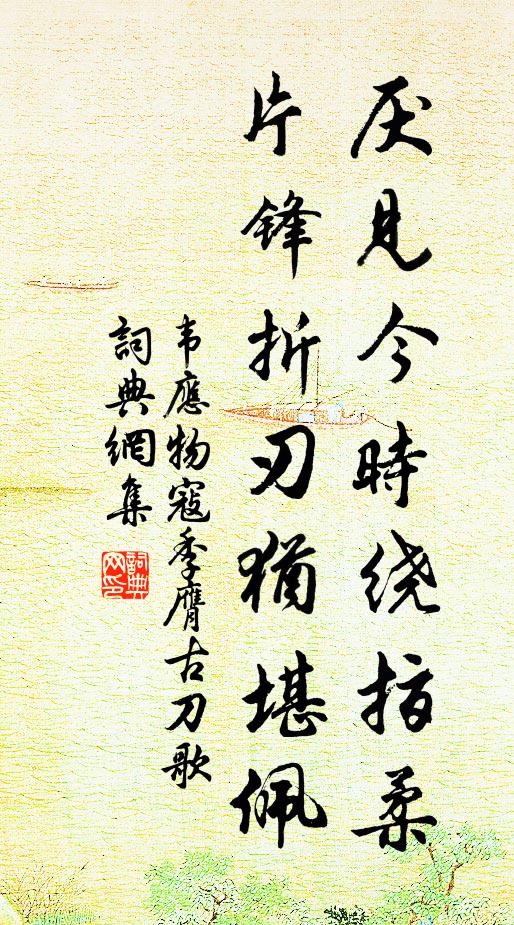 厌見今時绕指柔
片鋒折刃猶堪佩
韦應物寇季膺古刀歌
詞典網集
詞典网印